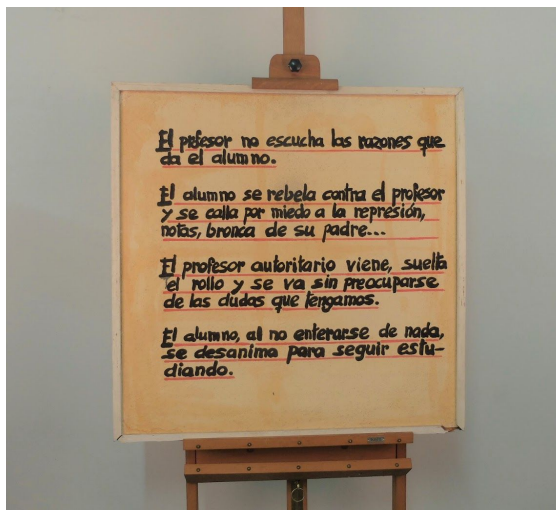 El profesor no escucha las razones que
da el alumno.
El alumno se rebela contra el profesor
y se calla por miedo a la represión,
notas, bronca de su padre...
El profesor autoritario viene, suelta
el rollo y se va sin preocuparse
de las dudas que tengamos.
El alumno, al no enterarse de nada,
se desanima para seguir estu-
diando.